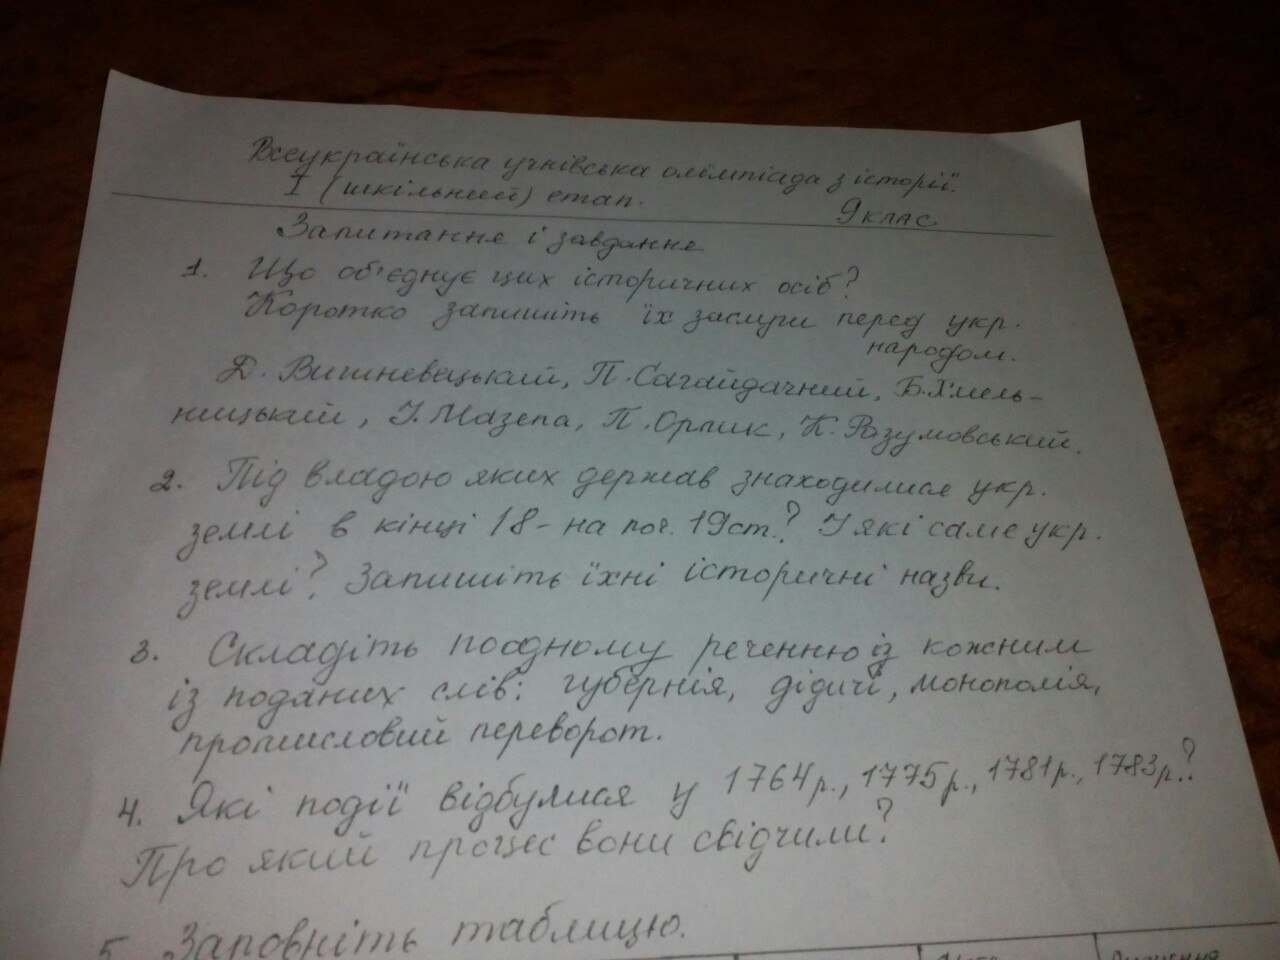 Всеукраїнська учнівська олімпіада з історії.
I (шкільний) етап.
9 клас
Запитання і завдання
1. Що об'єднує цих історичних осіб?
Коротко запишіть їх заслуги перед укр.
народом.
Д. Вишневецький, П. Сагайдачний, Б. Хмель-
ницький, І. Мазепа, П. Орлик, К. Розумовський.
2. Під владою яких держав знаходилися укр.
землі в кінці 18 - на поч. 19 ст.? І які саме укр.
землі? Запишіть їхні історичні назви.
3. Складіть по одному реченню із кожним
із поданих слів: губернія, дідичі, монополія,
промисловий переворот.
4. Які події відбулися у 1764р., 1775р., 1781р., 1783р.?
Про який процес вони свідчили?
5. Заповніть таблицю.